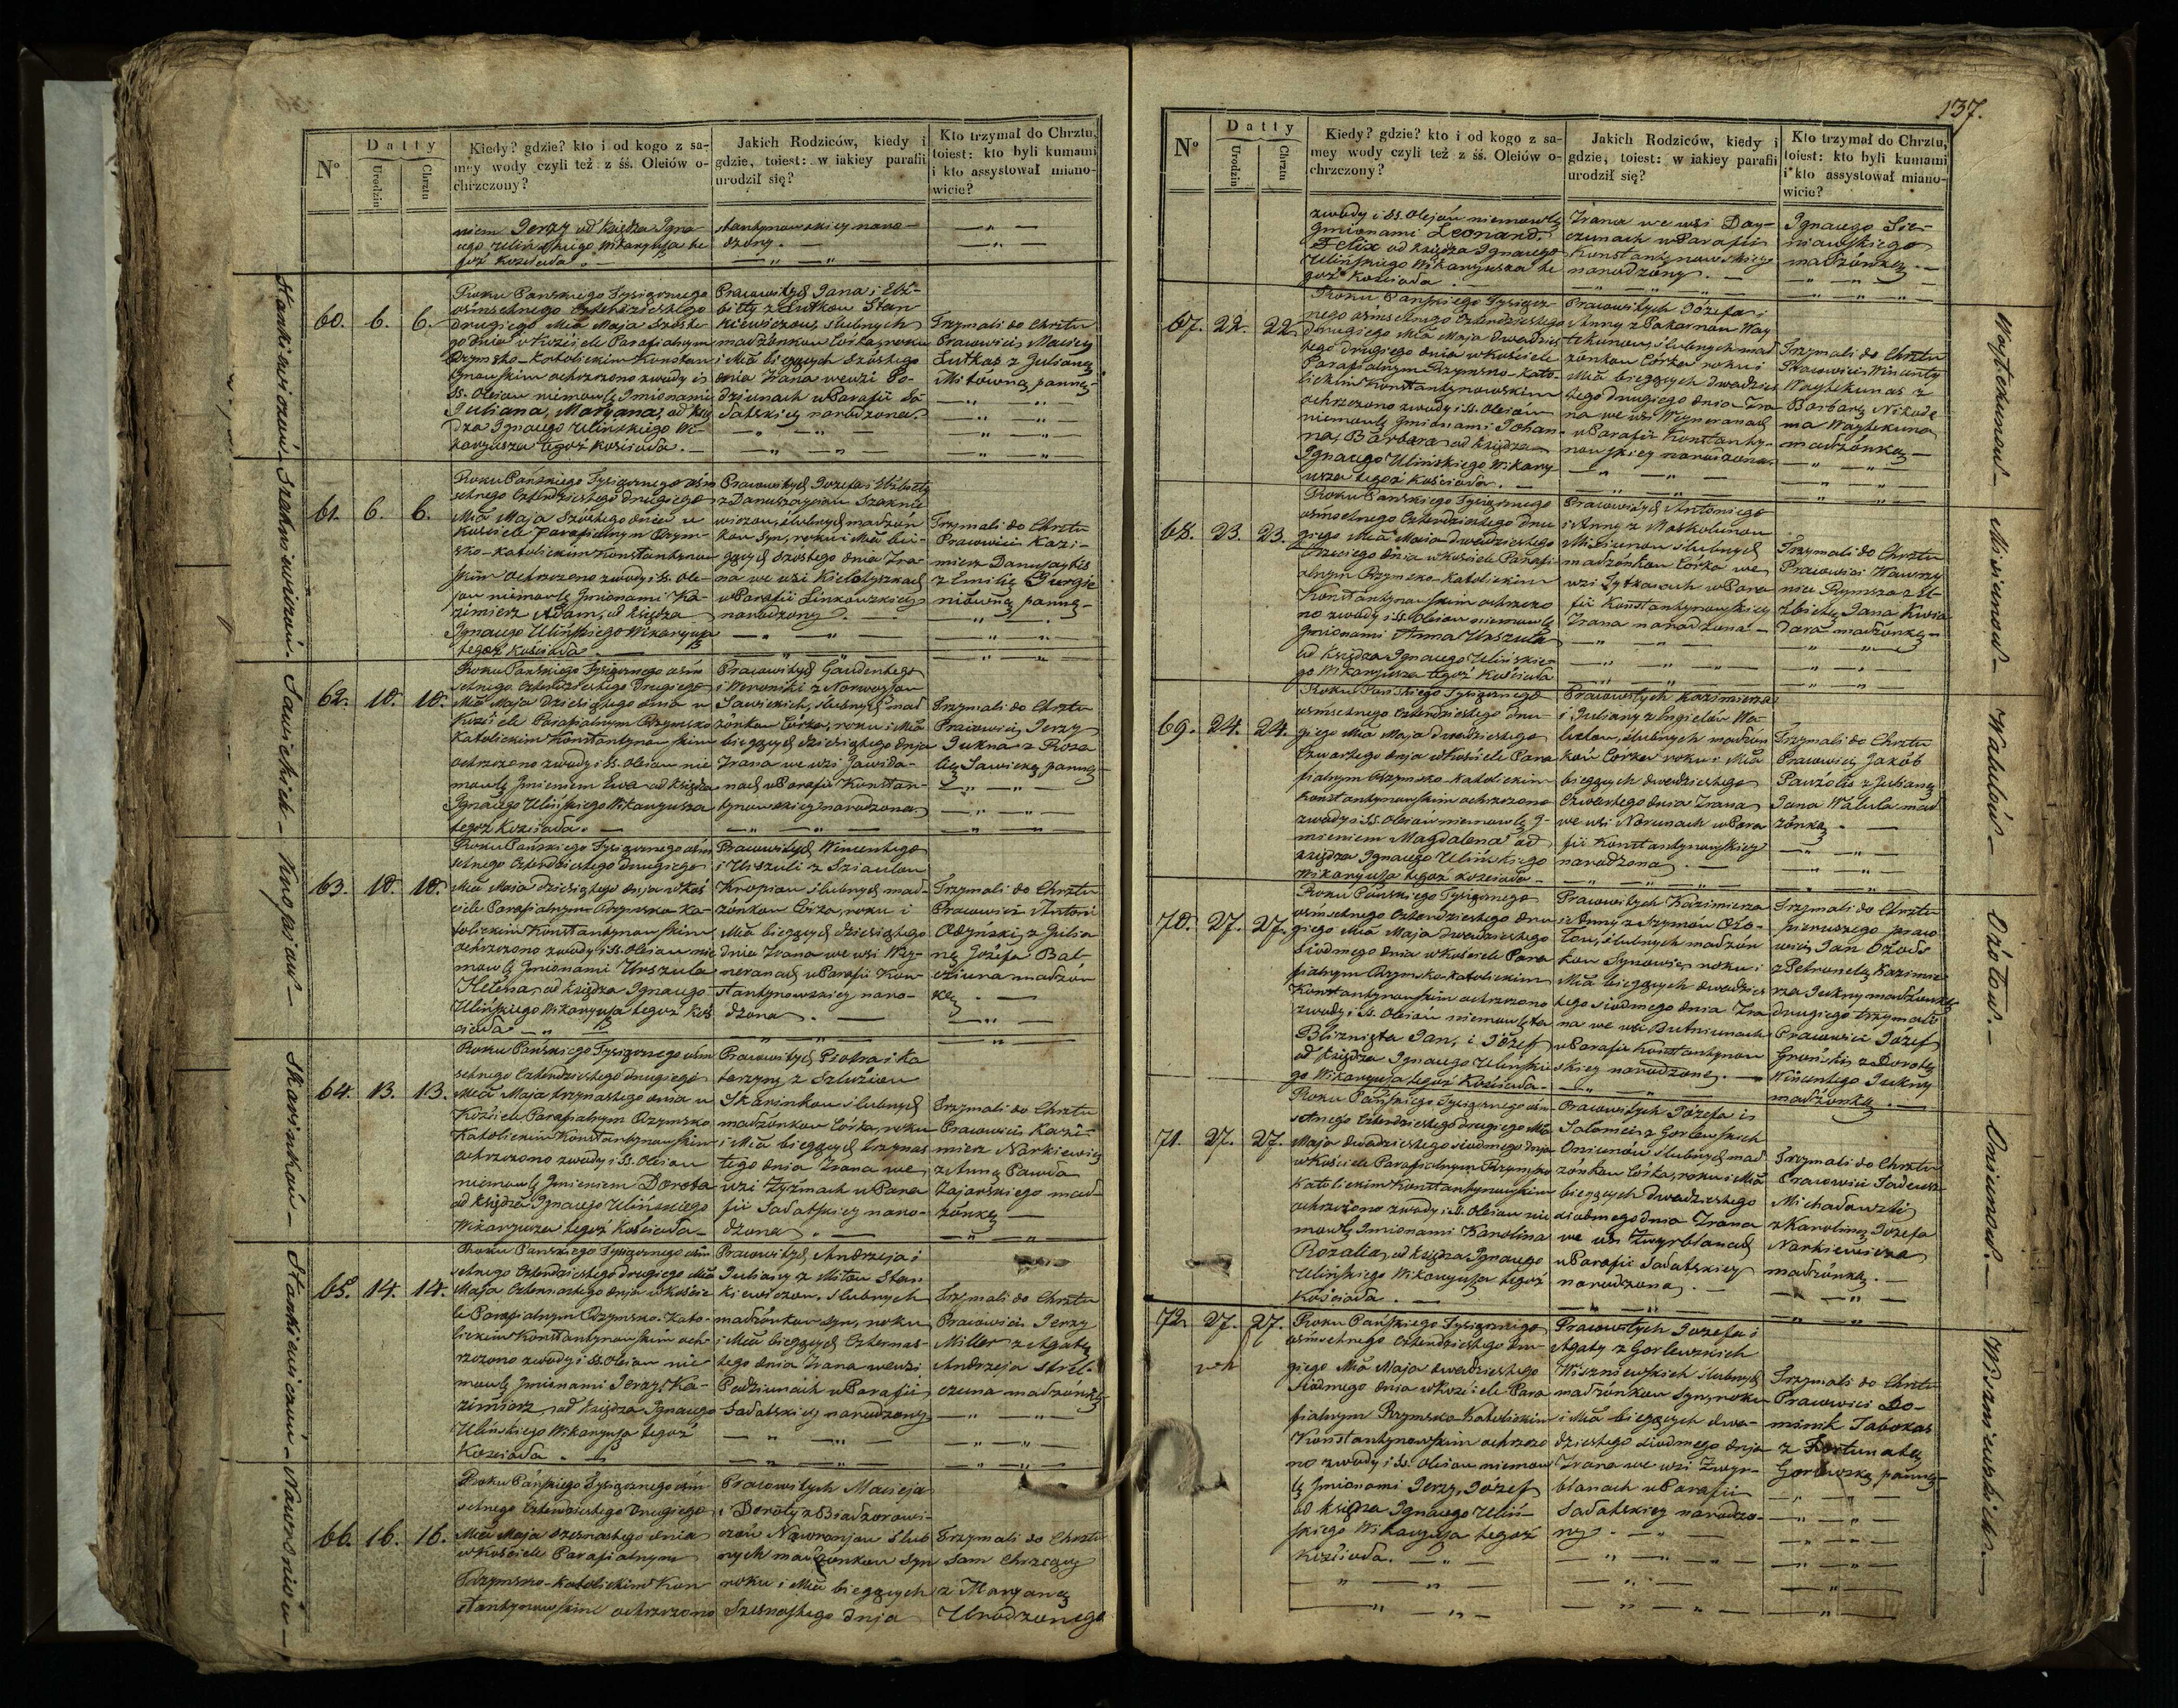 N°
Datty
Urodzin
Chrztu
Kiedy? gdzie? kto i od kogo z sa-
mey wody czyli też z śś. Oleiów o-
chrzczony?
Jakich Rodziców, kiedy i
gdzie, toiest: w iakiey parafii
urodził się?
Kto trzymał do Chrztu,
toiest: kto byli kumami
i kto assystował miano-
wicie?
niem Jerzy od księdza Igna-
cego Ulińskiego Wikaryusza te
goż Kościoła. —
stantynowskiey naro-
dzony. —
60. 6. 6.
Roku Pańskiego Tysiącznego
ośmsetnego Czterdziestego
drugiego Mca Maja szóste
go dnia w Kościele Parafialnym
Rzymsko-Katolickim Konstan
tynowskim ochrzczono zwody i
SS. Oleiow niemowlę Jmionami
Juliana, Maryana, od księ
dza Ignacego Ulińskiego Wi-
karyusza tegoż Kościoła. —
Pracowitych Jana i Elż-
biety z Lutkow Stan
kiewiczow, ślubnych
małżonkow Córka, roku
i Mca bieżących szóstego
dnia Zrana we wsi Po-
dziunach w Parafii Sa
łatskiey narodzona.
Trzymali do Chrztu
Pracowici Maciey
Lutkas z Julianą
Mitówną panną —
61. 6. 6.
Roku Pańskiego Tysiącznego ośm
setnego Czterdziestego drugiego
Mca Maja szóstego dnia w
Kościele Parafialnym Rzym-
sko-Katolickim Konstantyno
wskim ochrzczono zwody i SS. Ole-
jow niemowlę Jmionami Ka-
zimierz Adam, od księdza
Ignacego Ulińskiego Wikaryusza
tegoż Kościoła. —
Pracowitych Jozefa i Elżbiety
z Danuszaysow Szaknie
wiczow, ślubnych małżon
kow Syn, roku i Mca bie-
żących szóstego dnia Zra-
na we wsi Kiełotyszkach
w Parafii Linkowskiey
narodzony. —
Trzymali do Chrztu
Pracowici Kazi-
mierz Danuszaytis
z Emilią Jurgie
niówną panną —
62. 10. 10.
Roku Pańskiego Tysiącznego ośm
setnego Czterdziestego Drugiego
Mca Maja dziesiątego dnia w
Kościele Parafialnym Rzymsko
Katolickim Konstantynowskim
ochrzczono zwody i SS. Oleiow nie
mowlę Jmieniem Ewa od księdza
Ignacego Ulińskiego Wikaryusza
tegoż Kościoła. —
Pracowitych Gaudentego
i Weroniki z Norwoyszow
Sawickich, ślubnych mał
żonkow Córka, roku i Mca
bieżących dziesiątego dnia
Zrana we wsi Jawida-
nach w Parafii Konstan-
tynowskiey narodzona
Trzymali do Chrztu
Pracowici Jerzy
Jukna z Roza
lią Sawicką panną —
63. 10. 10.
Roku Pańskiego Tysiącznego ośm
setnego Czterdziestego drugiego
Mca Maja dziesiątego dnia w Koś
ciele Parafialnym Rzymsko Ka-
tolickim Konstantynowskim
ochrzczono zwody i SS. Oleiow nie
mowlę Jmionami Urszula
Helena, od księdza Ignacego
Ulińskiego Wikaryusza tegoż Koś
cioła —
Pracowitych Wincentego
i Urszuli z Sziaulow
Knopiow ślubnych mał-
żonkow Córka, roku i
Mca bieżących dziesiątego
dnia Zrana we wsi Wey-
neranach w Parafii Kon
stantynowskiey naro-
dzona. —
Trzymali do Chrztu
Pracowici Antoni
Odynski z Julia
ną Jozefa Bal-
cziuna małżon
ką. —
64. 13. 13.
Roku Pańskiego Tysiącznego ośm
setnego Czterdziestego drugiego
Mca Maja trzynastego dnia w
Kościele Parafialnym Rzymsko
Katolickim Konstantynowskim
ochrzczono zwody i SS. Oleiow
niemowlę Jmieniem Dorota
od księdza Ignacego Ulińskiego
Wikaryusza tegoż Kościoła —
Pracowitych Piotra i Ka
tarzyny z Szluziow
Skarinkow ślubnych
małżonkow Córka, roku
i Mca bieżących trzynas
tego dnia Zrana we
wsi Żyżmach w Para
fii Sałatskiey naro-
dzona. —
Trzymali do Chrztu
Pracowici Kazi-
mierz Narkiewicz
z Anną Pawła
Zajarskiego mał-
żonką —
65. 14. 14.
Roku Pańskiego Tysiącznego ośm
setnego Czterdziestego drugiego Mca
Maja Czternastego dnia w Koście
le Parafialnym Rzymsko-Kato-
lickim Konstantynowskim och-
rzczono zwody i SS. Oleiow nie
mowlę Jmionami Jerzy, Ka-
zimierz, od księdza Ignacego
Ulińskiego Wikaryusza tegoż
Kościoła. —
Pracowitych Andrzeja i
Julianny z Mitow Stan
kiewiczow, ślubnych
małżonkow Syn, roku
i Mca bieżących Czternas-
tego dnia Zrana we wsi
Podziunach w Parafii
Sałatskiey narodzony
Trzymali do Chrztu
Pracowici Jerzy
Miller z Agatą
Andrzeja Strel-
czuna małżonką
66. 16. 16.
Roku Pańskiego Tysiącznego ośm
setnego Czterdziestego Drugiego
Mca Maja szesnastego dnia
w Kościele Parafialnym
Rzymsko-Katolickim Kon
stantynowskim ochrzczono
Pracowitych Macieja
i Doroty z Biadzorowi-
czow Nawroniow ślub
nych małżonkow Syn
roku i Mca bieżących
Szesnastego dnia
Trzymali do Chrztu
Sam Chrzcący
z Maryaną
Urodzonego
Stankiewiczow — Szakniewiczow — Sawickich — Knopiow — Skarinkow — Stankiewiczow — Nawroniow —
137.
N°
Datty
Urodzin
Chrztu
Kiedy? gdzie? kto i od kogo z sa-
mey wody czyli też z śś. Oleiów o-
chrzczony?
Jakich Rodziców, kiedy i
gdzie, toiest: w iakiey parafii
urodził się?
Kto trzymał do Chrztu,
toiest: kto byli kumami
i kto assystował miano-
wicie?
zwody i SS. Olejow niemowlę
Jmionami Leonard,
Felix od księdza Ignacego
Ulińskiego Wikaryusza te
goż Kościoła. —
Zrana we wsi Day-
czunach w Parafii
Konstantynowskiey
narodzony. —
Ignacego Sie-
niawskiego
małżonką. —
67. 22. 22.
Roku Pańskiego Tysiącz-
nego ośmsetnego Czterdziestego
drugiego Mca Maja dwudzies
tego drugiego dnia w Kościele
Parafialnym Rzymsko-Kato-
lickim Konstantynowskim
ochrzczono zwody i SS. Oleiow
niemowlę Jmionami Johan-
na, Barbara od księdza
Ignacego Ulińskiego Wikary
usza tegoż Kościoła. —
Pracowitych Józefa i
Anny z Pakarnow Way
tekunow, ślubnych mał
żonkow Córka roku i
Mca bieżących dwudzies
tego drugiego dnia Zra
na we wsi Weyneranach
w Parafii Konstanty-
nowskiey narodzona.
Trzymali do Chrztu
Pracowici Wincenty
Waytekunas z
Barbarą Nikode
ma Waytekuna
małżonką —
68. 23. 23.
Roku Pańskiego Tysiącznego
ośmsetnego Czterdziestego dru
giego Mca Maja dwudziestego
trzeciego dnia w Kościele Parafi-
alnym Rzymsko-Katolickim
Konstantynowskim ochrzczo
no zwody i SS. Oleiow niemowlę
Jmionami Anna Urszula
od księdza Ignacego Ulińskie-
go Wikaryusza tegoż Kościoła
Pracowitych Antoniego
i Anny z Maskolunow
Misiunow ślubnych
małżonkow Córka we
wsi Sytkunach w Para
fii Konstantynowskiey
Zrana narodzona —
Trzymali do Chrztu
Pracowici Wawrzy
niec Rymsza z El-
żbietą Jana Kwia
dara małżonką —
69. 24. 24.
Roku Pańskiego Tysiącznego
ośmsetnego Czterdziestego dru-
giego Mca Maja dwudziestego
Czwartego dnia w Kościele Para
fialnym Rzymsko-Katolickim
Konstantynowskim ochrzczono
zwody i SS. Oleiow niemowlę J-
mieniem Magdalena od
księdza Ignacego Ulińskiego
Wikaryusza tegoż Kościoła —
Pracowitych Kazimierza
i Julianny z Engielow Wa-
lulow, ślubnych małżon
kow Córka roku i Mca
bieżących dwudziestego
Czwartego dnia Zrana
we wsi Norunach w Para
fii Konstantynowskiey
narodzona. —
Trzymali do Chrztu
Pracowici Jakób
Pauzolis z Julianą
Jana Walula mał
żonką. —
70. 27. 27.
Roku Pańskiego Tysiącznego
ośmsetnego Czterdziestego dru
giego Mca Maja dwudziestego
siodmego dnia w Kościele Para
fialnym Rzymsko-Katolickim
Konstantynowskim ochrzczono
zwody i SS. Oleiow niemowlęta
Bliznięta Jan, i Józef
od księdza Ignacego Ulińskie
go Wikaryusza tegoż Kościoła. —
Pracowitych Kazimierza
i Anny z Szymow Ożo-
łow, ślubnych małżon
kow Synowie, roku i
Mca bieżących dwudzies
tego siodmego dnia Zra
na we wsi Butniunach
w Parafii Konstantynow
skiey narodzone. —
Trzymali do Chrztu
pierwszego praco
wici Jan Ożoło
z Petronelą Kazimie
rza Jukny małżonką
drugiego trzymali
Pracowici Józef
Groński z Dorotą
Wincentego Jukny
małżonką. —
71. 27. 27.
Roku Pańskiego Tysiącznego ośm
setnego Czterdziestego drugiego Mca
Maja dwudziestego siodmego dnia
w Kościele Parafialnym Rzymsko
Katolickim Konstantynowskim
ochrzczono zwody i SS. Oleiow nie
mowlę Jmionami Karolina
Rozalia, od księdza Ignacego
Ulińskiego Wikaryusza tegoż
Kościoła. —
Pracowitych Józefa i
Salomei z Gorlewskich
Oniunow ślubnych mał
żonkow Córka, roku i Mca
bieżących dwudziestego
siodmego dnia Zrana
we wsi Zwyrblanach
w Parafii Sałatskiey
narodzona. —
Trzymali do Chrztu
Pracowici Tadeusz
Michałowski
z Karoliną Jozefa
Narkiewicza
małżonką. —
72. 27. 27.
Roku Pańskiego Tysiącznego
ośmsetnego Czterdziestego dru-
giego Mca Maja dwudziestego
siodmego dnia w Kościele Para
fialnym Rzymsko-Katolickim
Konstantynowskim ochrzczo
no zwody i SS. Oleiow niemow
lę Jmionami Jerzy, Józef
od księdza Ignacego Uliń-
skiego Wikaryusza tegoż
Kościoła. —
Pracowitych Jozefa i
Agaty z Gorlewskich
Wiszniewskich ślubnych
małżonkow Syn, roku
i Mca bieżących dwu-
dziestego siodmego dnia
Zrana we wsi Zwyr-
blanach w Parafii
Sałatskiey narodzo-
ny. —
Trzymali do Chrztu
Pracowici Do-
minik Tabokas
z Fortunatą
Gorlewską panną —
Waytekunow — Misiunow — Walulow — Ożołow — Oniunow — Wiszniewskich —